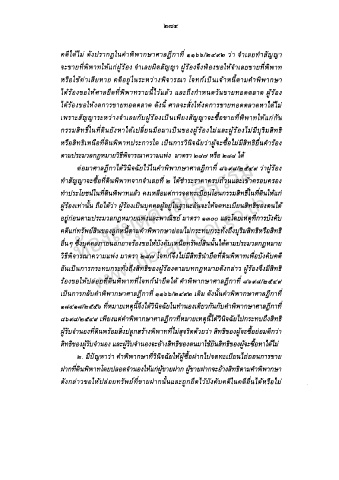 ๒๘๔
คดีได้ไม่ ดังปรากฏในคำพิพากษาศาลฎีกาที่ ๑๑๖๖/๒๔๙๒ ว่า จำเลยทำสัญญา
จะขายที่พิพาทให้แก่ผู้ร้อง จำเลยผิดสัญญา ผู้ร้องจึงฟ้องขอให้จำเลยขายที่พิพาท
หรือใช้ค่าเสียหาย คดีอยู่ในระหว่างพิจารณา โจทก์เป็นเจ้าหนี้ตามคำพิพากษา
ได้ร้องขอให้ศาลยึดที่พิพาทรายนี้ไว้แล้ว และถึงกำหนดวันขายทอดตลาด ผู้ร้อง
ได้ร้องขอให้งดการขายทอดตลาด ดังนี้ ศาลจะสั่งให้งดการขายทอดตลาดหาได้ไม่
เพราะสัญญาระหว่างจำเลยกับผู้ร้องเป็นเพียงสัญญาจะซื้อขายที่พิพาทให้แก่กัน
กรรมสิทธิ์ในที่ดินยังหาได้เปลี่ยนมือมาเป็นของผู้ร้องไม่และผู้ร้องไม่มีบุริมสิทธิ
หรือสิทธิเหนือที่ดินพิพาทประการใด เป็นการวินิจฉัยว่าผู้จะซื้อไม่มีสิทธิยื่นคำร้อง
ตามประมวลกฎหมายวิธีพิจารณาความแพ่ง มาตรา ๒๘๗ หรือ ๒๘๘ ได้
ต่อมาศาลฎีกาได้วินิจฉัยไว้ในคำพิพากษาศาลฎีกาที่ ว่า ผู้ร้อง
ทำสัญญาจะซื้อที่ดินพิพาทจากจำเลยที่ ๒ ได้ชำระราคาครบถ้วนและเข้าครอบครอง
ทำประโยชน์ในที่ดินพิพาทแล้ว คงเหลือแต่การจดทะเบียนโอนกรรมสิทธิ์ในที่ดินให้แก่
ผู้ร้องเท่านั้น ถือได้ว่า ผู้ร้องเป็นบุคคลผู้อยู่ในฐานะอันจะให้จดทะเบียนสิทธิของตนได้
อยู่ก่อนตามประมวลกฎหมายแพ่งและพาณิชย์ มาตรา ๑๓๐๐ และโดยเหตุที่การบังคับ
คดีแก่ทรัพย์สินของลูกหนี้ตามคำพิพากษาย่อมไม่กระทบกระทั่งถึงบุริมสิทธิหรือสิทธิ
อื่นๆ ซึ่งบุคคลภายนอกอาจร้องขอให้บังคับเหนือทรัพย์สินนั้นได้ตามประมวลกฎหมาย
วิธีพิจารณาความแพ่ง มาตรา ๒๘๗ โจทก์จึงไม่มีสิทธินำยึดที่ดินพิพาทเพื่อบังคับคดี
อันเป็นการกระทบกระทั่งถึงสิทธิของผู้ร้องตามบทกฎหมายดังกล่าว ผู้ร้องจึงมีสิทธิ
ร้องขอให้ปล่อยที่ดินพิพาทที่โจทก์นำยึดได้ คำพิพากษาศาลฎีกาที่
เป็นการกลับคำพิพากษาศาลฎีกาที่ ๑๑๖๖/๒๔๙๒ เดิม ดังนั้นคำพิพากษาศาลฎีกาที่
ที่หมายเหตุนี้จึงได้วินิจฉัยในทำนองเดียวกันกับคำพิพากษาศาลฎีกาที่
เพียงแต่คำพิพากษาศาลฎีกาที่หมายเหตุนี้ได้วินิจฉัยไปกระทบถึงสิทธิ
ผู้รับจำนองที่ดินพร้อมสิ่งปลูกสร้างพิพาทที่ไม่สุจริตด้วยว่า สิทธิของผู้จะซื้อย่อมดีกว่า
สิทธิของผู้รับจำนอง และผู้รับจำนองจะอ้างสิทธิของตนมาใช้ยันสิทธิของผู้จะซื้อหาได้ไม่
๒. มีปัญหาว่า คำพิพากษาที่วินิจฉัยให้ผู้ซื้อฝากไปจดทะเบียนไถ่ถอนการขาย
ฝากที่ดินพิพาทโดยปลอดจำนองให้แก่ผู้ขายฝาก ผู้ขายฝากจะอ้างสิทธิตามคำพิพากษา
ดังกล่าวขอให้ปล่อยทรัพย์ที่ขายฝากนั้นและถูกยึดไว้บังคับคดีในคดีอื่นได้หรือไม่